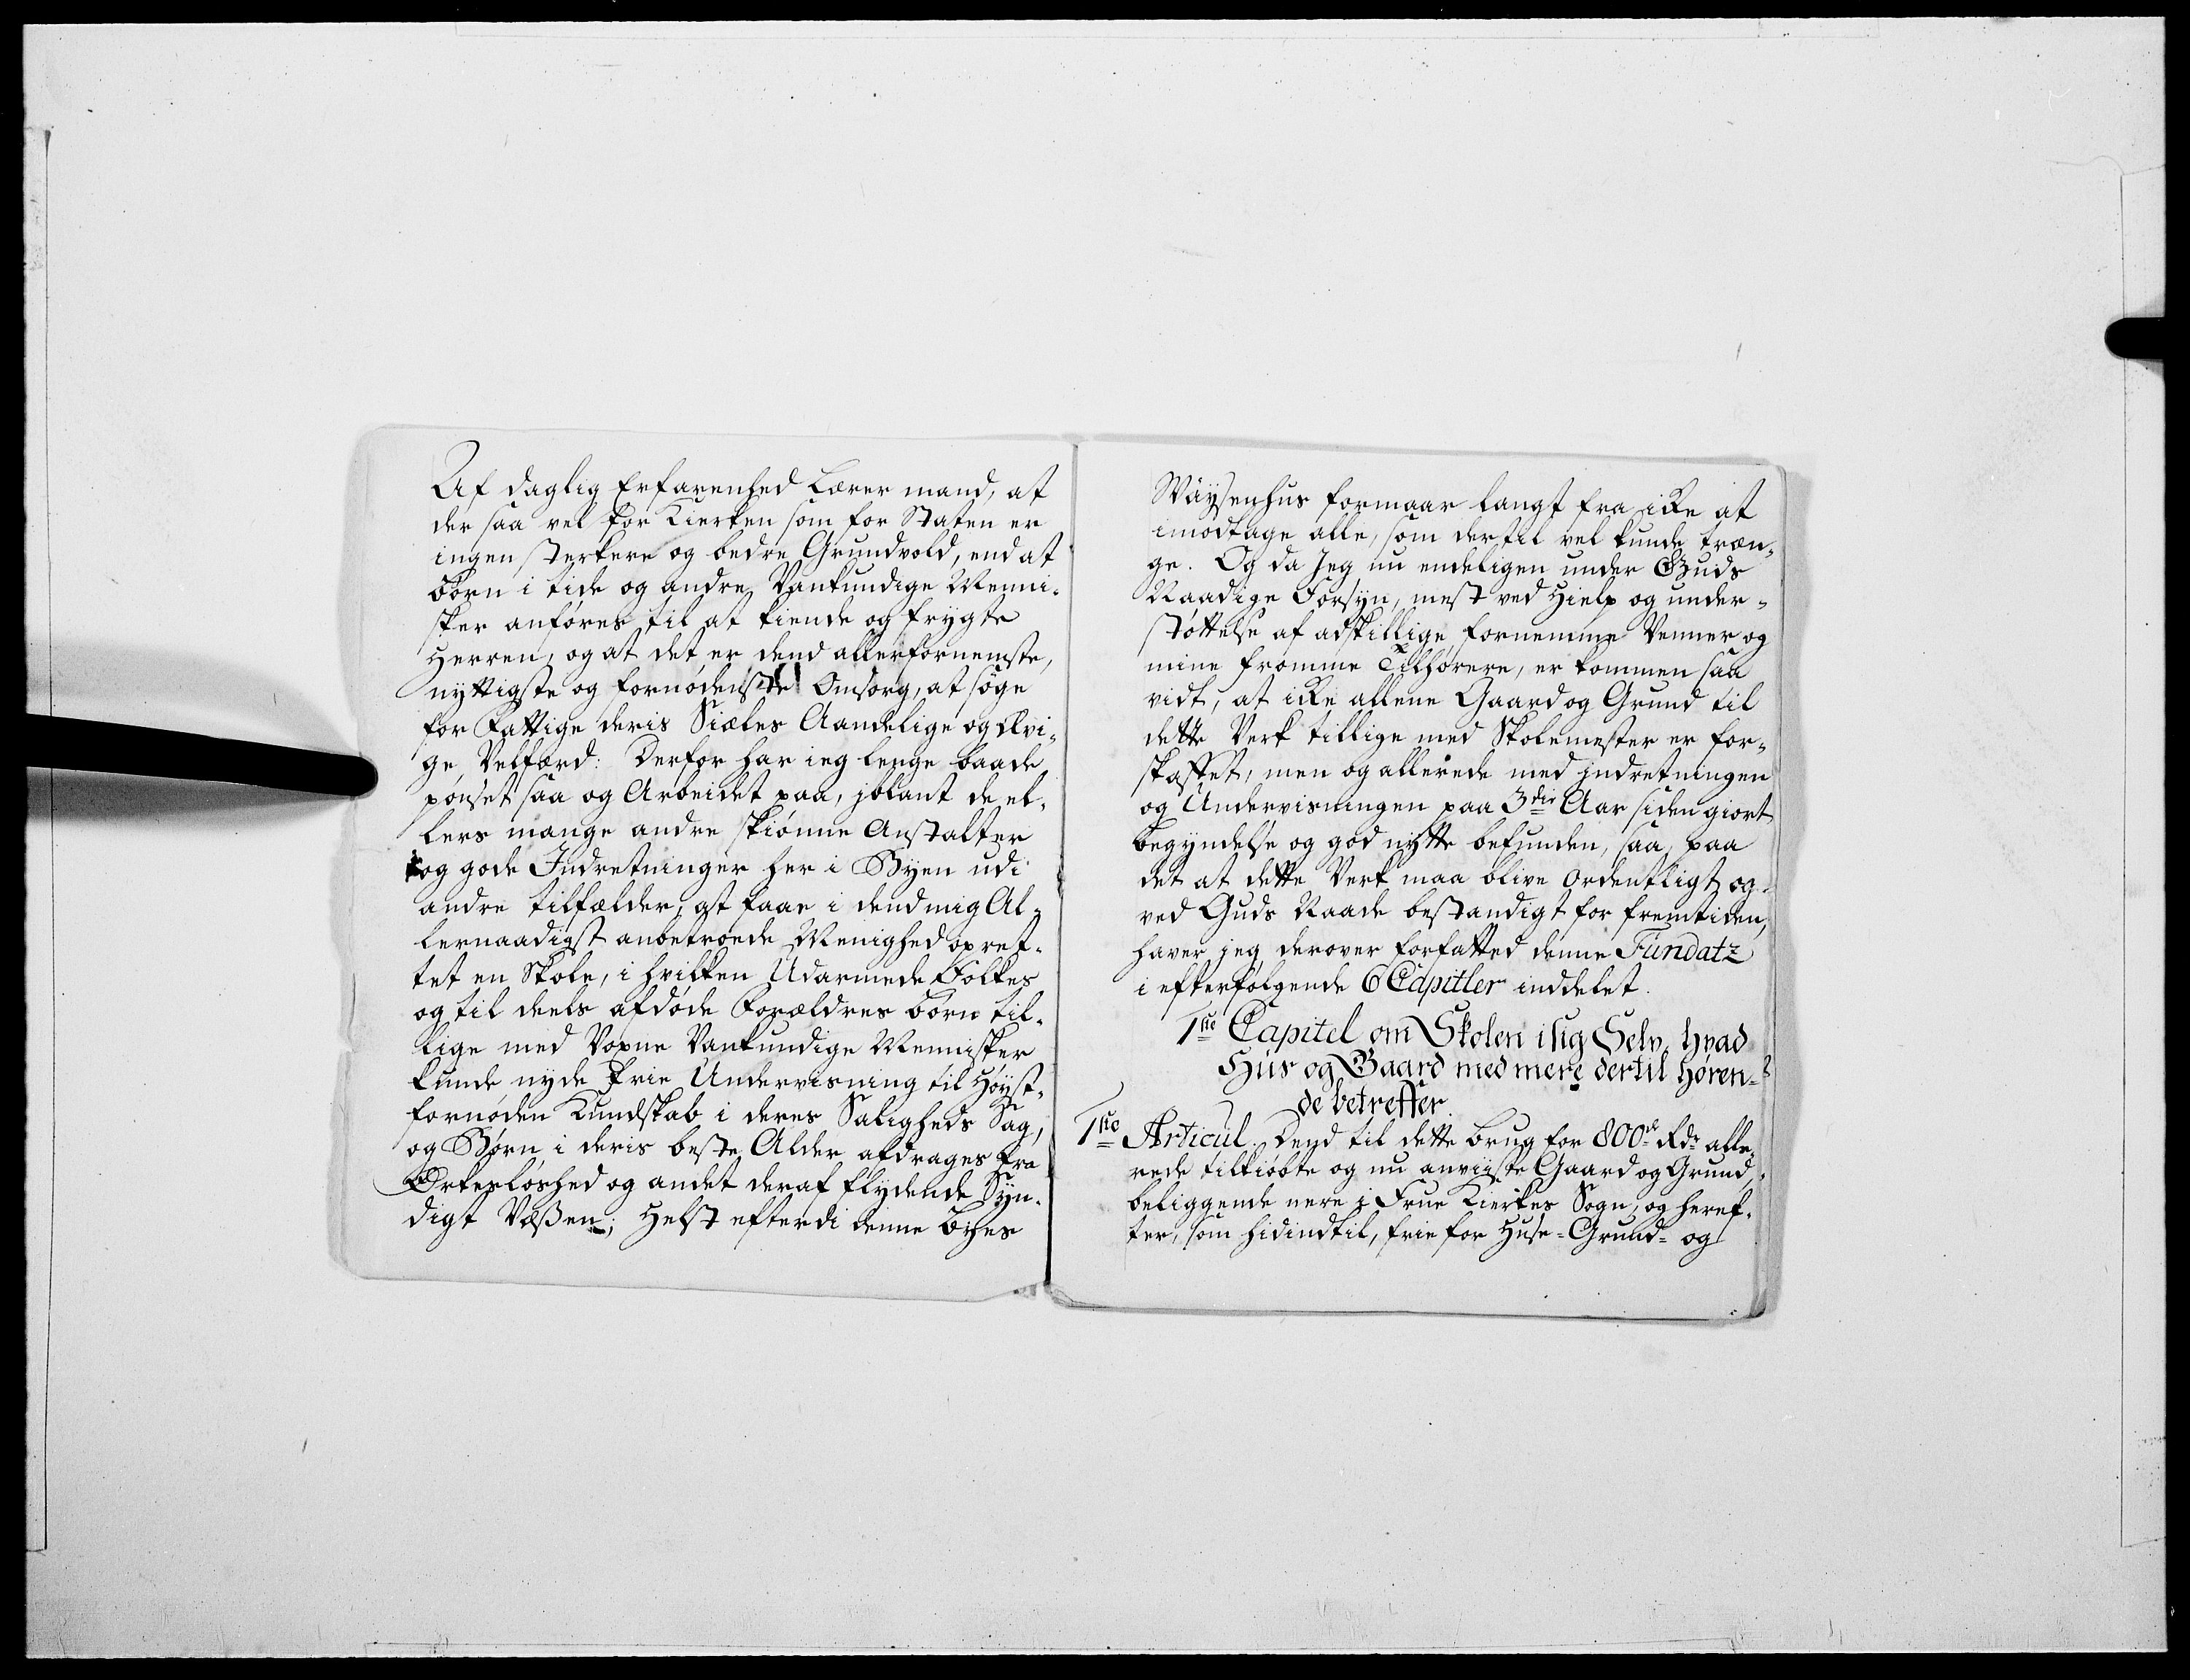 Af daglig Erfarenhed Lærer mand, at
der saa vel for Kierken som for Staten er
ingen sterkere og bedre Grundvold, end at
Børn i tide og andre Vankundige Menni-
sker anføres til at kiende og frygte
Herren, og at det er dend allerfornemste,
nyttigste og fornødenste Omsorg, at søge
for Fattige deris Siæles Aandelige og Evi-
ge Velfærd: Derfor har ieg lenge baade
pønset saa og Arbeidet paa, jblant de el-
lers mange andre skiønne Anstalter
og gode Indretninger her i Byen udi
andre tilfælder, at faae i dend mig Al-
lernaadigst anbetroede Menighed opret-
tet en Skole, i hvilken Udarmede Folkes
og til deels afdøde Forældres Børn til-
lige med Voxne Vankundige Mennisker
kunde nyde frie Undervisning til Høyst-
fornøden Kundskab i deres Saligheds Sag,
og Børn i deris beste Alder afdrages fra
Ørkesløshed og andet deraf flydende Syn-
digt Væßen; Helst efterdi denne Byes
Wäysenhus formaar langt fra ikke at
imodtage alle, som dertil vel kunde træn-
ge. Og da Jeg nu endeligen under Guds
Naadige Forsyn, mest ved Hielp og under-
støttelse af adskillige fornemme Venner og
mine fromme Tilhørere, er kommen saa
vidt, at ikke allene Gaard og Grund til
dette Verk tillige med Skolemester er for-
skaffet, men og allerede med jndretningen
og Undervisningen paa 3die Aar siden giort
begyndelse og god nytte befunden, saa, paa
det at dette Verk maa blive Ordentligt og
ved Guds Naade bestandigt for fremtiden,
haver jeg derover forfatted denne Fundatz
i efterfølgende 6 Capitler inddelet.
1ste Capitel om Skolen i sig Selv, hvad
Hus og Gaard med mere dertil høren-
de betreffer.
1ste Articul. Dend til dette brug for 800de Rdr alle-
rede tilkiøbte og nu anviiste Gaard og Grund,
beliggende nere i Frue Kierkes Sogn, og heref-
ter, som hidindtil, frie for Huse- Grund- og